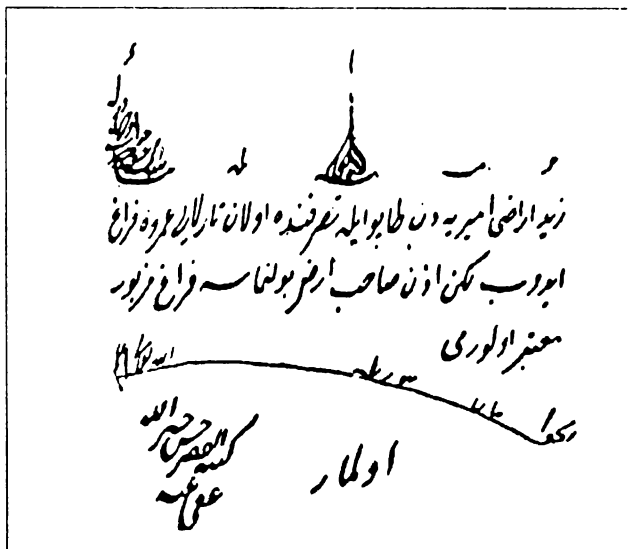 زيد اراضئ ميريه دن طاپو ايله تصرفنده اولان تارلالرى عمروه فراغ
ايدوب لكن اذن صاحب ارض بولنماسه فراغ مزبور
معتبر اولورمى
الجواب
اولماز
كتبه الفقير حسن خير الله
عفى عنه